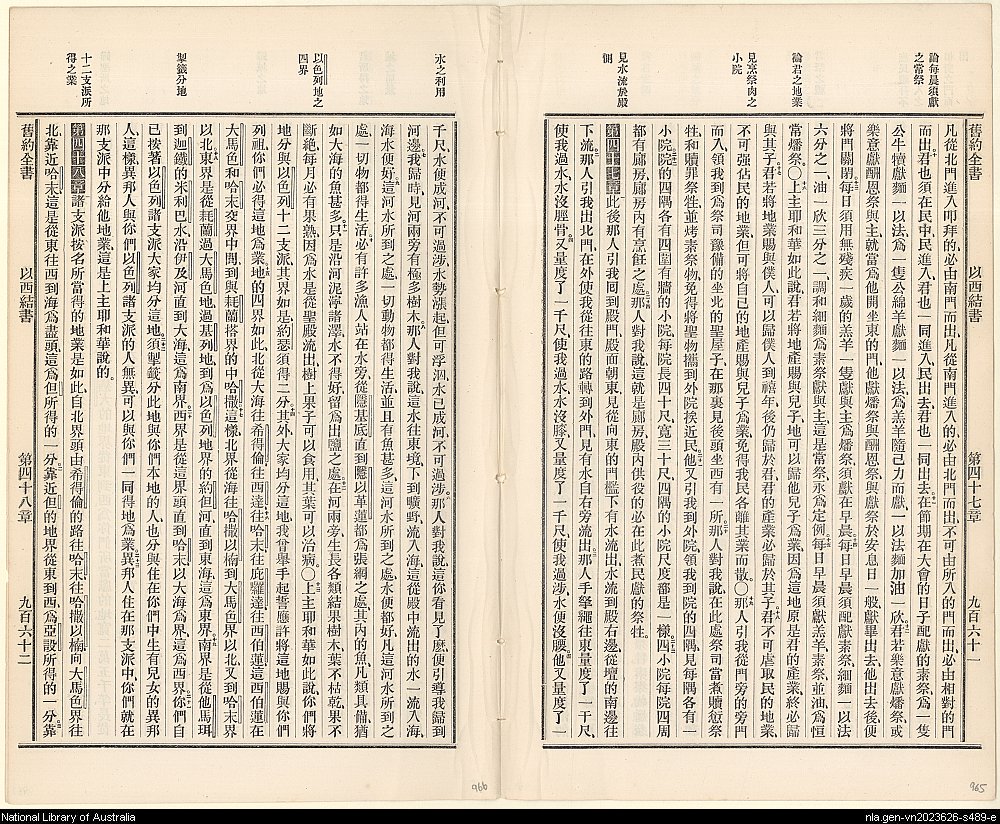 論每晨須獻
之常祭
論君之地業
見烹祭肉之
小院
見水流於殿
側
舊約全書 以西結書 第四十七章 九百六十一
凡從北門進入叩拜的必由南門而出凡從南門進入的必由北門而出不可由所入的門而出必由相對的門
而出君也須在民中民進入君也一同進入民出去君也一同出去在節期在大會的日子配獻的素祭為一隻
公牛犢獻麵一以法為一隻公綿羊獻麵一以法為羔羊隨己力而獻一以法麵加油一欣君若樂意獻燔祭或
樂意獻酬恩祭與主就當為他開坐東的門他獻燔祭與酬恩祭與獻祭於安息日一般獻畢出去他出去後便
將門關閉每日須用無殘疾一歲的羔羊一隻獻與主為燔祭須獻在早晨每日早晨須配獻素祭細麵一以法
六分之一油一欣三分之一調和細麵為素祭獻與主這是常祭永為定例每日早晨須獻羔羊素祭並油為恒
常燔祭〇上主耶和華如此說君若將地產賜與兒子地可以歸他兒子為業因為這地原是君的產業終必歸
與其子君若將地業賜與僕人可以歸僕人到禧年後仍歸於君君的產業必歸於其子君不可虐取民的地業
不可強佔民的地業但可將自己的地產賜與兒子為業免得我民各離其業而散〇那人引我從門旁的旁門
而入領我到為祭司豫備的坐北的聖屋子在那裏見後頭坐西有一所那人對我說在此處祭司當煮贖愆祭
牲和贖罪祭牲並烤素祭物免得將聖物攜到外院挨近民他又引我到外院領我到院的四隅見每隅各有一
小院院的四隅各有四圍有牆的小院每院長四十尺寬三十尺四隅的小院尺度都是一樣四小院每院四周
都有廊房廊房內有烹飪之處那人對我說這就是廊房殿內供役的必在此煮民獻的祭牲
第四十七章此後那人引我回到殿門殿面朝東見從向東的門檻下有水出水流到殿右邊從壇的南邊往
下流那人引我出北門在外使我從往東的路轉到外門見有水自右旁流出那人手拏繩往東量度了一千尺
使我過水水沒脛骨又量度了一千尺使我過水水沒膝又量度了一千尺使我過涉水便沒腰他又量度了一
965
水之利用
以色列地之
四界
掣籤分地
十二支派所
得之業
千尺水便成河不可過涉水勢漲起但可浮泅水已成河不可過涉那人對我說這你看見了麽便引導我歸到
河邊我歸時見河兩旁有極多樹木那人對我說這水往東境下到曠野流入海這從殿中流出的水一流入海
海水便好這河水所到之處一切動物都得生活並且有魚甚多這河水所到之處水便都好凡這河水所到之
處一切物都得生活必有許多漁人站在水旁從隱基底直到隱以革蓮都為張網之處其內的魚凡類具備猶
如大海的魚甚多只是沿河泥濘諸澤水不得好留為出鹽之處在河兩旁生長各類結果樹木葉不枯乾果不
斷絕每月必有果熟因為水是從聖殿流出樹上果子可以食用其葉可以治病〇上主耶和華如此說你們將
地分與以色列十二支派其界如是約瑟須得二分其外大家均分這地我曾舉手起誓應許將這地賜與你們
列祖你們必得這地為業地的四界如此北從大海往希得倫往西達往哈末往庇羅達往西伯蓮這西伯蓮在
大馬色和哈末交界中間到與耗蘭搭界的中哈撒這樣北界從海往哈撒以楠到大馬色界以北又到哈末界
以北東界是從耗蘭過大馬色地過基列地到為以色列地界的約但河直到東海這為東界南界是從他馬珥
到迦鐵的米利巴水沿伊及河直到大海這為南界西界是從這界頭直到哈末以大海為界這為西界你們自
已按著以色列諸支派大家均分這地須掣籤分此地與你們本地的人也分與住在你們中生有兒女的異邦
人這樣異邦人與你們以色列諸支派的人無異可以與你們一同得地為業異邦人住在那支派中你們就在
那支派中分給他地業這是上主耶和華說的
第四十八章諸支派按名所當得的地業是如此自北界頭由希得倫的路往哈末往哈撒以楠向大馬色界往
北靠近哈末這是從東往西到海為盡頭這為但所得的一分靠近但的地界從東到西為亞設所得的一分靠
舊約全書 以西結書 第四十八章 九百六十二
966
National Library of Australia
nla.gen-vn2023626-s489-e